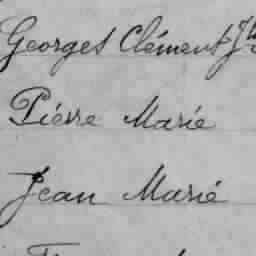 Georges Clément Jh
Pierre Marie
Jean Marie